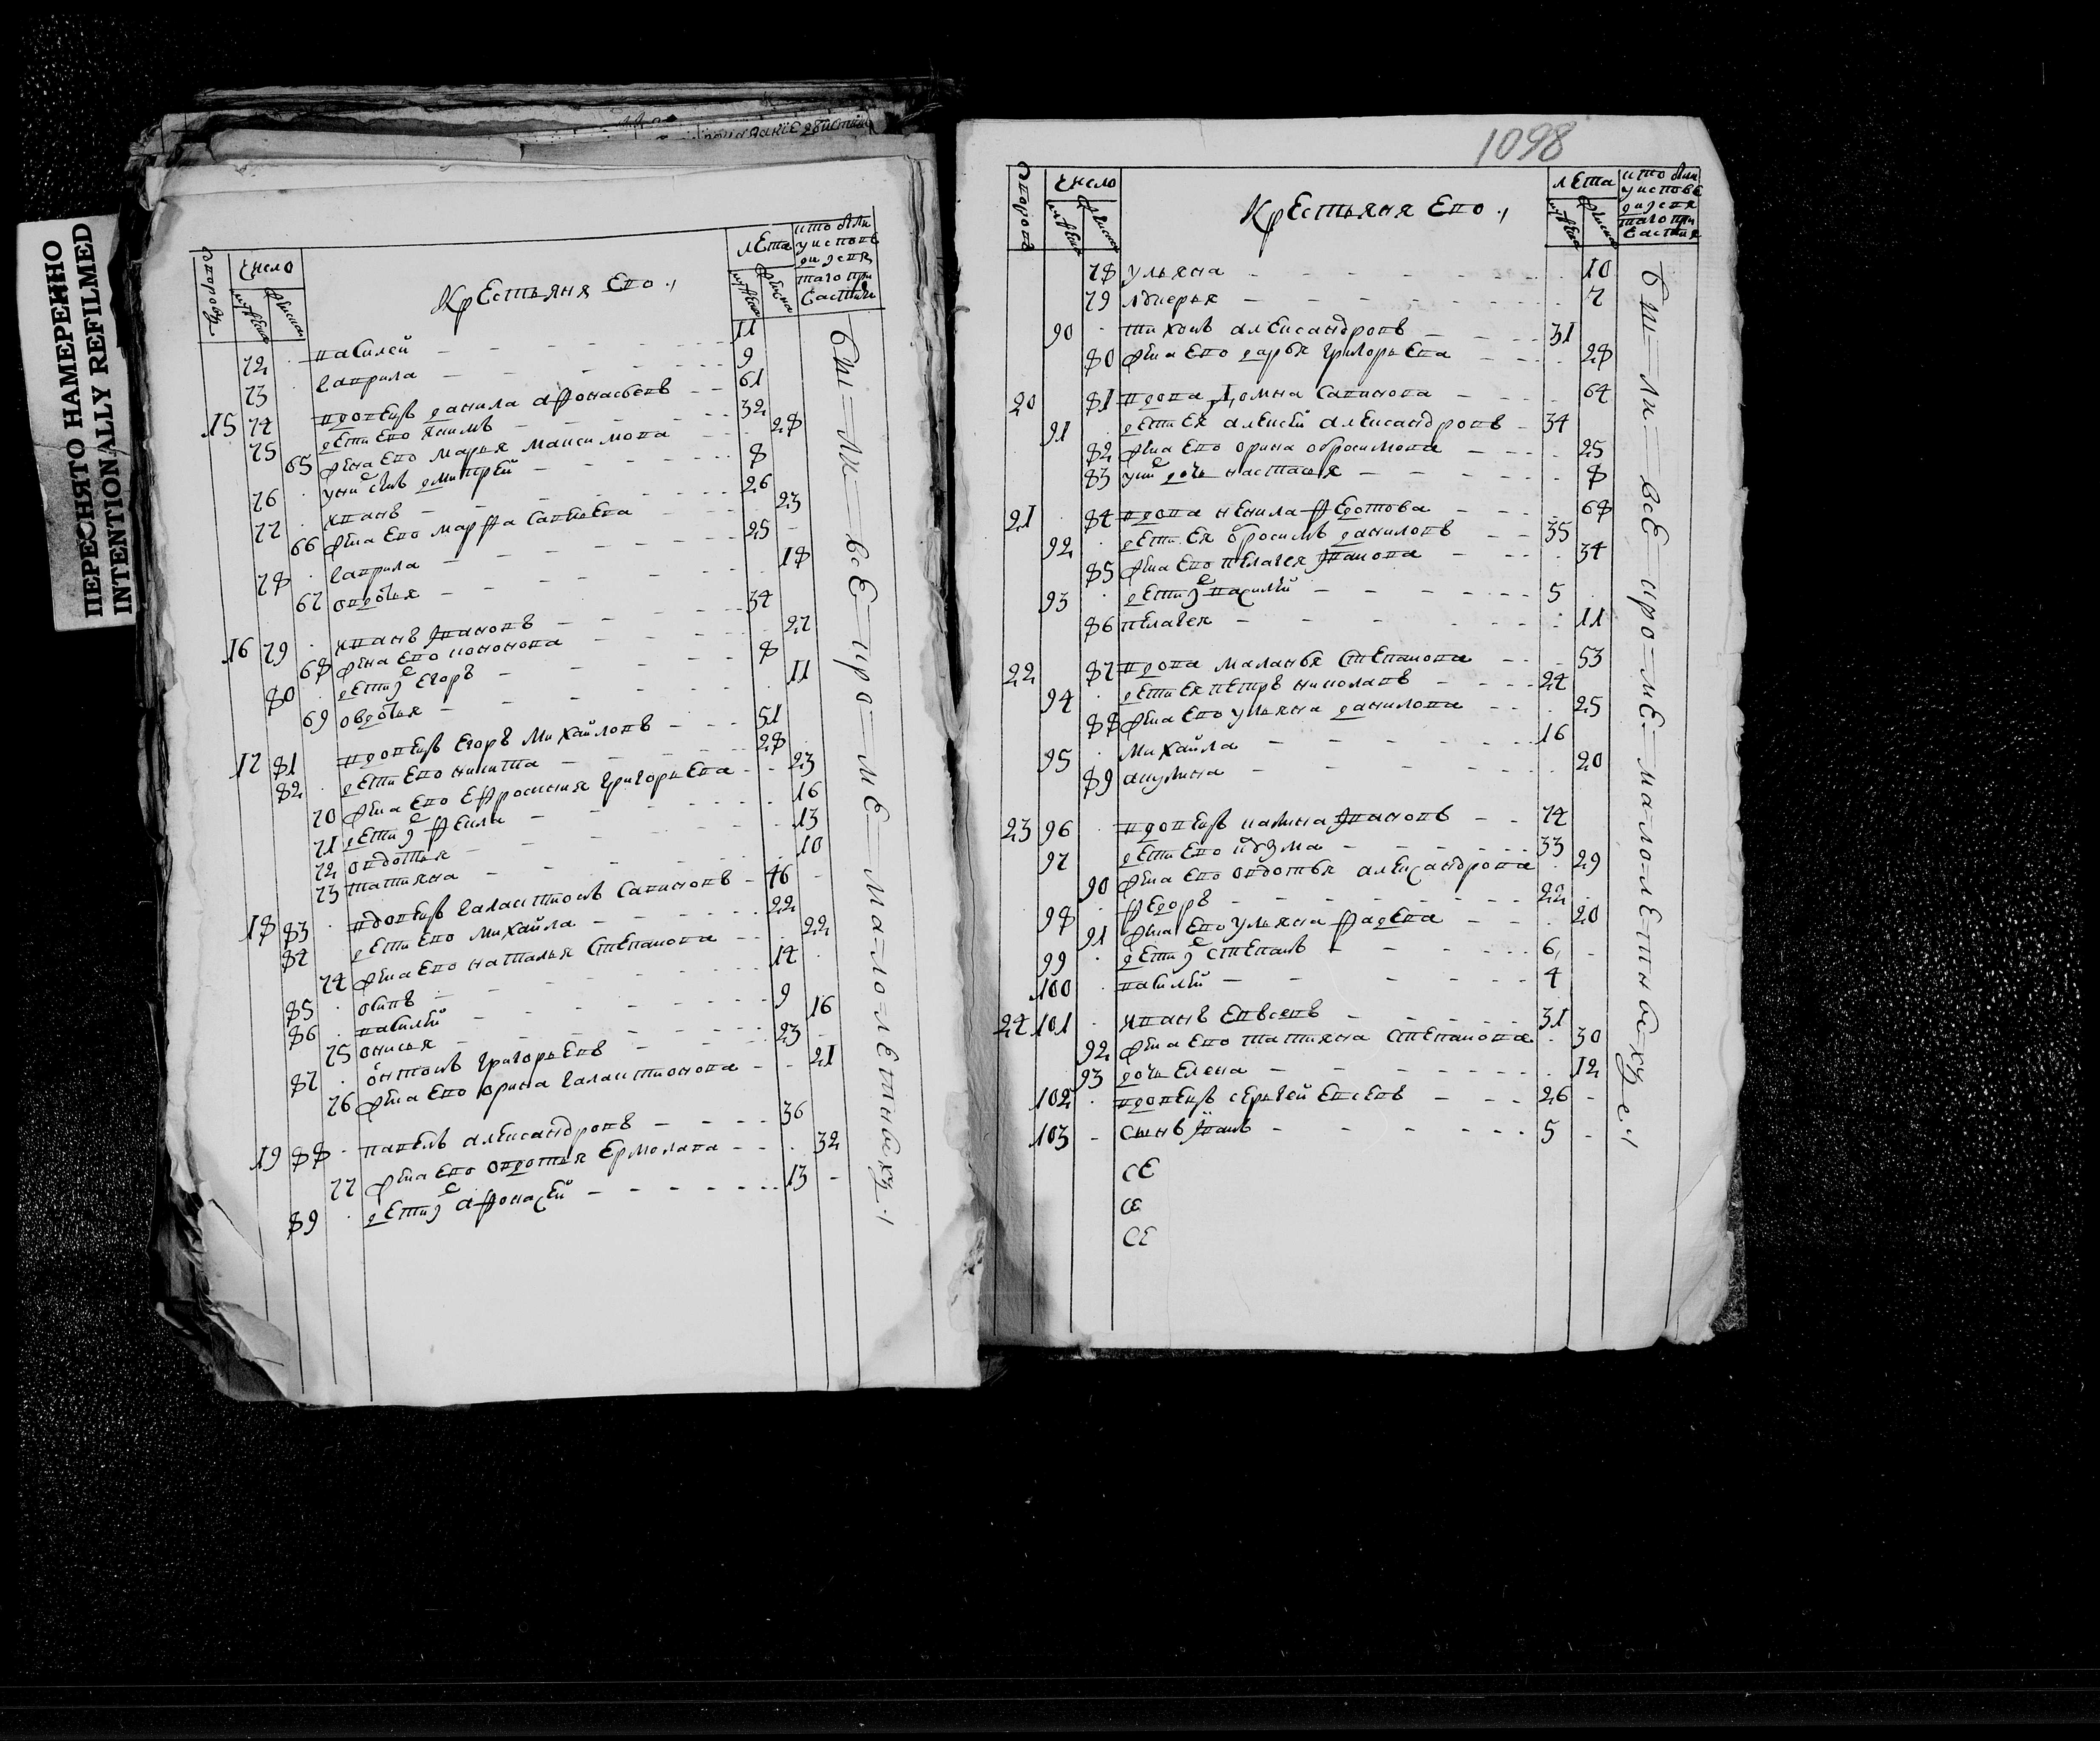 ПЕРЕСНЯТО НАМЕРЕННО
INTENTIONALLY REFILMED
дворовъ
число
мужеска
женска
Крестьяня Ево
лета
мужеска
женска
72 василей 11
73 гаврила 9
15 74 вдовецъ данила афонасьевъ 61
75 дети ево якимъ 32
65 жена ево марья максимова 28
76 у них сынъ дмитрей 8
77 иванъ 26
66 жена ево марфа савельева 23
78 гаврила 25
67 овдотья 18
16 79 иванъ ивановъ 34
68 жена ево 27
80 дети их егоръ 8
69 овдотья 11
17 81 вдовецъ егоръ михайловъ 51
82 дети ево никита 28
70 жена ево ефросиния григорьева 23
71 дети их фекла 16
72 овдотья 13
73 татияна 10
18 83 вдовецъ галактионъ савиновъ 46
84 дети ево михайла 22
74 жена ево наталья степанова 22
85 осипъ 14
86 василей 9
75 онисья 16
87 онтонъ григорьевъ 23
76 жена ево орина галактионова 21
19 88 павелъ александровъ 36
77 жена ево овдотья ермолаева 32
89 дети их афонасей 13
бы ли все кроме малолетныхъ
1098
дворовъ
число
мужеска
женска
Крестьяня Ево
лета
мужеска
женска
78 ульяна 10
79 лукерья 7
90 тихонъ александровъ 31
80 жена ево дарья григорьева 28
20 81 вдова Домна савинова 64
91 дети ея алексей александровъ 34
82 жена ево орина обросимова 25
83 у них дочь настасья 8
21 84 вдова ненила федотова 68
92 дети ея обросимъ даниловъ 35
85 жена ево пелагея иванова 34
93 дети их василей 5
86 пелагея 11
22 87 вдова маланья степанова 53
94 дети ея петръ николаевъ 24
88 жена ево ульяна данилова 25
95 михайла 16
89 акулина 20
23 96 вдовецъ калина ивановъ 74
97 дети ево кузма 33
90 жена ево овдотья александрова 29
98 федоръ 22
91 жена ево ульяна фадеева 20
99 дети их степанъ 6
100 василей 4
24 101 иванъ евсеевъ 31
92 жена ево татияна степанова 30
93 дочь елена 12
102 вдовецъ сергей евсеевъ 26
103 сынъ иванъ 5
СЕ
СЕ
СЕ
бы ли все кроме малолетныхъ